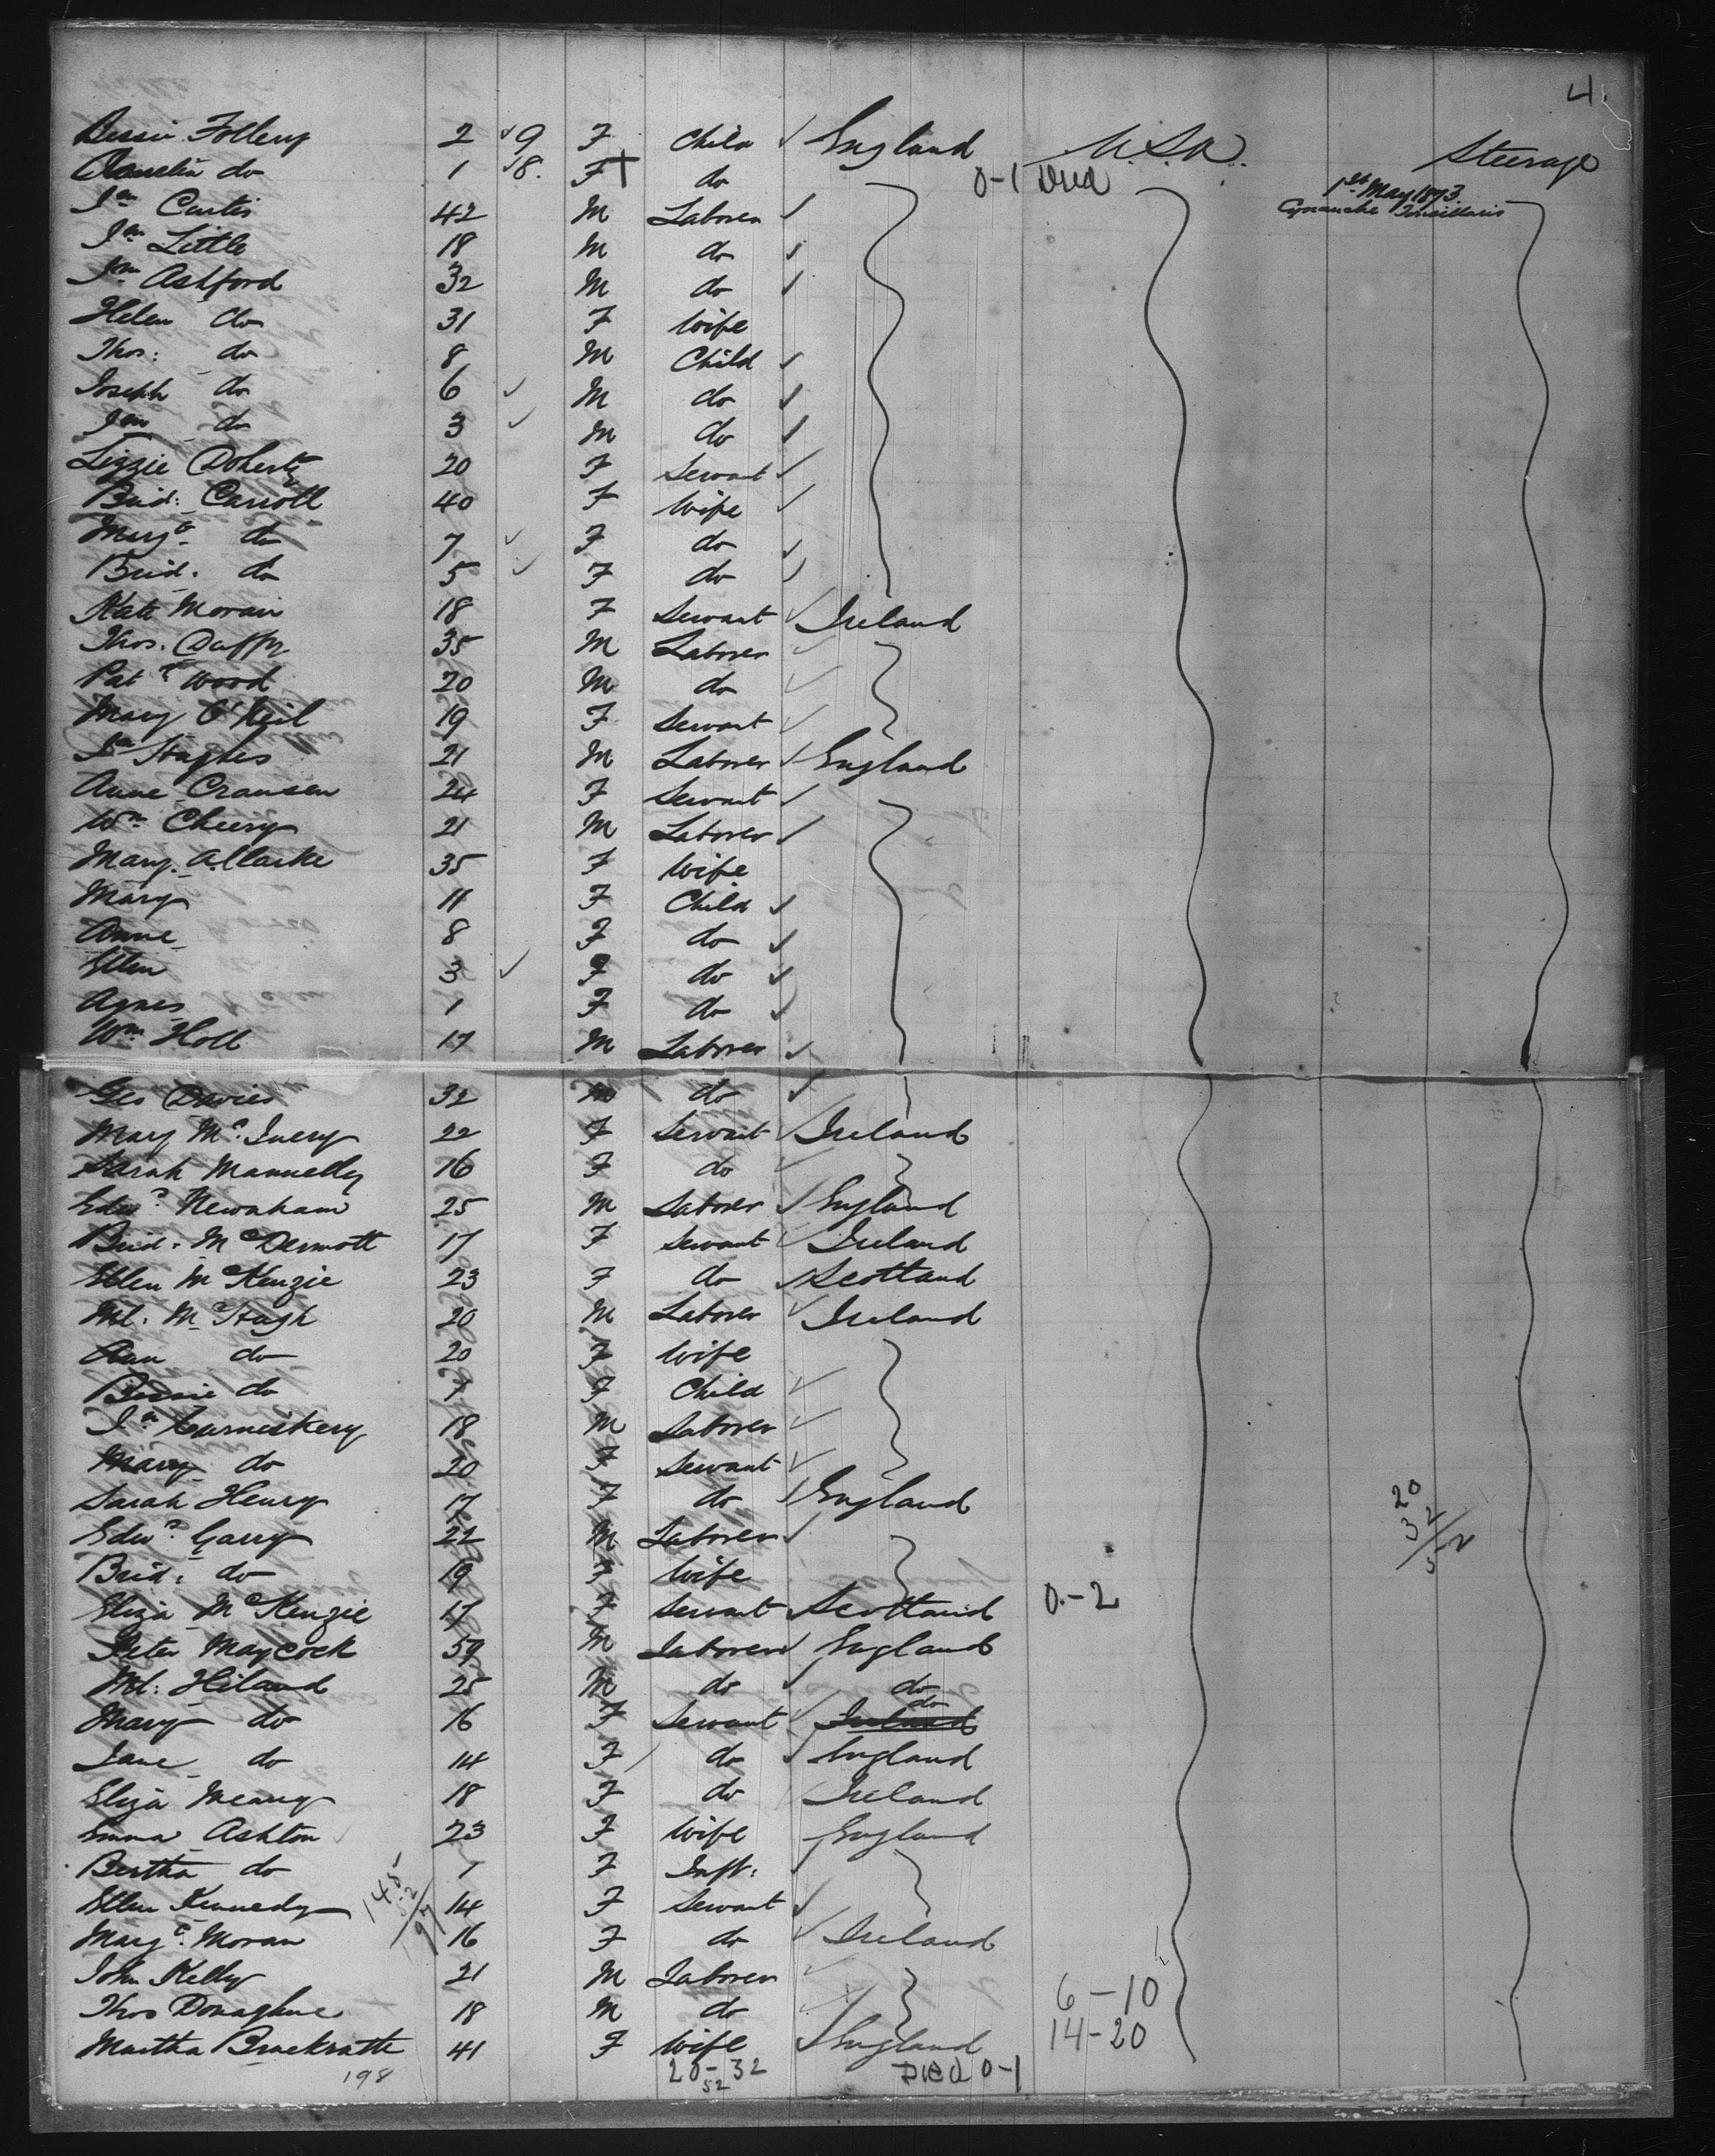 4.
Bessie Follery 2 9 F Child England U.S.A. Steerage
Amelia do 1 8. F do 0-1 Died 1st May 1873. Cynanche Tonsillaris
Jno Curtis 42 M Laborer
Jno Little 18 M do
Jno Ashford 32 M do
Helen do 31 F Wife
Thos: do 8 M Child
Joseph do 6 M do
Jno do 3 M do
Lizzie Doherty 20 F Servant
Brid: Carroll 40 F Wife
Margt do 7 F do
Brid. do 5 F do
Kate Moran 18 F Servant Ireland
Thos. Duffy 35 M Laborer
Patk Wood 20 M do
Mary O'Neil 19 F Servant
Jno Hughes 21 M Laborer England
Anne Cransen 24 F Servant
Wm Cheery 21 M Laborer
Mary A. Clarke 35 F Wife
Mary 11 F Child
Anne 8 F do
Ellen 3 F do
Agnes 1 F do
Wm Holt 17 M Laborer
Geo Davies 32 M do
Mary Mc 22 F Servant Ireland
Sarah Mannelly 16 F do
Edwd Newnham 25 M Laborer England
Brid. McDermott 17 F Servant Ireland
Ellen McKenzie 23 F do Scotland
Ml. McHugh 20 M Laborer Ireland
Ann do 20 F Wife
Bessie do 7 F Child
Jno 18 M Laborer
Mary do 20 F Servant
Sarah Henry 17 F do England
20
32
52
Edwd Garry 22 M Laborer
Brid: do 19 F Wife
Eliza McKenzie 17 F Servant Scotland 0.-2
Peter Maycock 59 M Laborer England
Ml: Hiland 25 M do do
Mary do 16 F Servant Ireland do
Jane do 14 F do England
Eliza Meany 18 F do Ireland
Emma Ashton 23 F Wife England
Bertha do 1 F Inft:
145
52
197
Ellen Kennedy 14 F Servant
Margt Moran 16 F do Ireland
John Kelly 21 M Laborer
Thos Donaghue 18 M do 6-10
Martha 41 F Wife England 14-20
198 20-32 Died 0-1
52